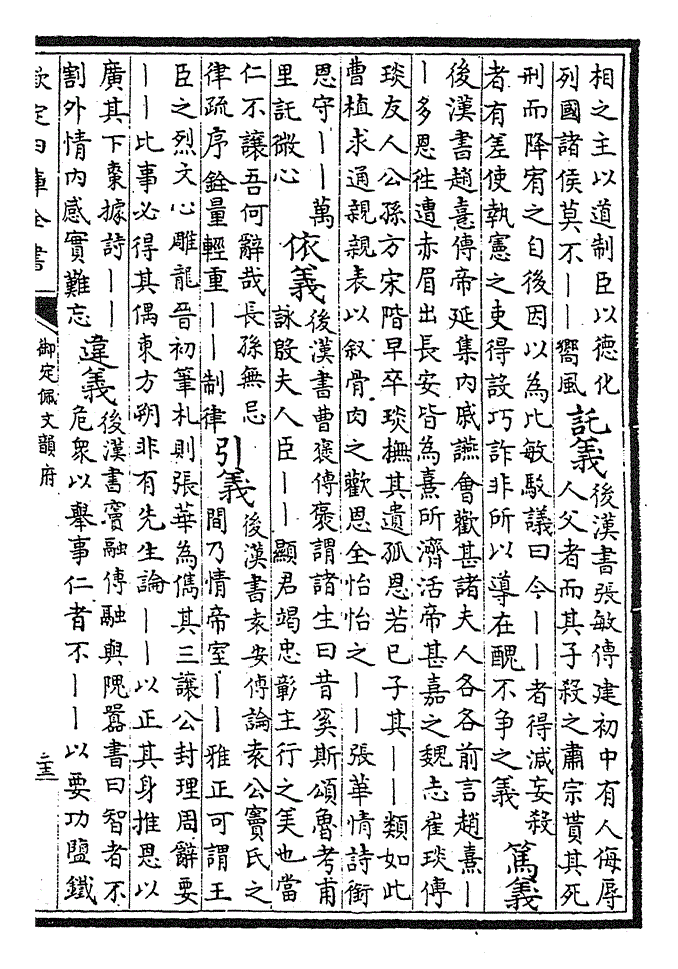 相之主以道制臣以德化
列國諸侯莫不——嚮風
託義
後漢書張敏傳建初中有人侮辱
人父者而其子殺之肅宗貰其死
刑而降宥之自後因以為比敏駮議曰今——者得減妄殺
者有差使執憲之吏得設巧詐非所以導在醜不争之義
篤義
後漢書趙憙傳帝延集內戚讌會歡甚諸夫人各各前言趙熹—
—多恩徃遭赤眉出長安皆為熹所濟活帝甚嘉之魏志崔琰傳
琰友人公孫方宋階早卒琰撫其遺孤恩若已子其——類如此
曹植求通親親表以叙骨肉之歡恩全怡怡之——張華情詩銜
恩守——萬
里託微心
依義
後漢書曹褒傳褒謂諸生曰昔奚斯頌魯考甫
詠殷夫人臣——顯君竭忠彰主行之美也當
仁不讓吾何辭哉長孫無忌
律疏序銓量輕重——制律
引義
後漢書袁安傳論袁公竇氏之
間乃情帝室——雅正可謂王
臣之烈文心雕龍晉初筆札則張華為儁其三讓公封理周辭要
——比事必得其偶東方朔非有先生論——以正其身推恩以
廣其下棗據詩——
割外情內感實難忘
違義
後漢書竇融傳融與隗囂書曰智者不
危衆以舉事仁者不——以要功鹽鐵
欽定四庫全書
御定佩文韻府